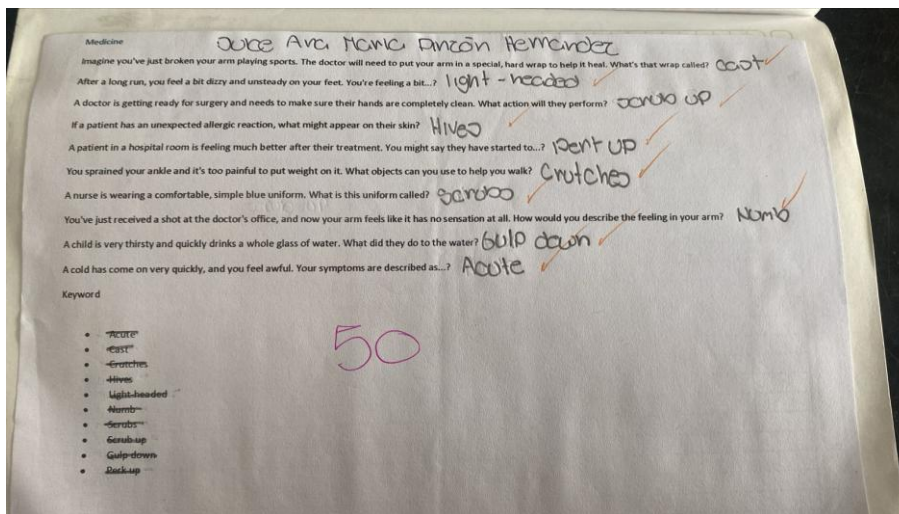 Medicine Dulce Ana Maria Pinzón Hernandez
Imagine you've just broken your arm playing sports. The doctor will need to put your arm in a special, hard wrap to help it heal. What's that wrap called? cast
After a long run, you feel a bit dizzy and unsteady on your feet. You're feeling a bit...? light - headed
A doctor is getting ready for surgery and needs to make sure their hands are completely clean. What action will they perform? scrub up
If a patient has an unexpected allergic reaction, what might appear on their skin? Hives
A patient in a hospital room is feeling much better after their treatment. You might say they have started to...? Perk up
You sprained your ankle and it's too painful to put weight on it. What objects can you use to help you walk? Crutches
A nurse is wearing a comfortable, simple blue uniform. What is this uniform called? Scrubs
You've just received a shot at the doctor's office, and now your arm feels like it has no sensation at all. How would you describe the feeling in your arm? Numb
A child is very thirsty and quickly drinks a whole glass of water. What did they do to the water? Gulp down
A cold has come on very quickly, and you feel awful. Your symptoms are described as...? Acute
Keyword
• Acute
• Cast
• Crutches
• Hives
• Light-headed
• Numb
• Scrubs
• Scrub up
• Gulp down
• Perk up
50